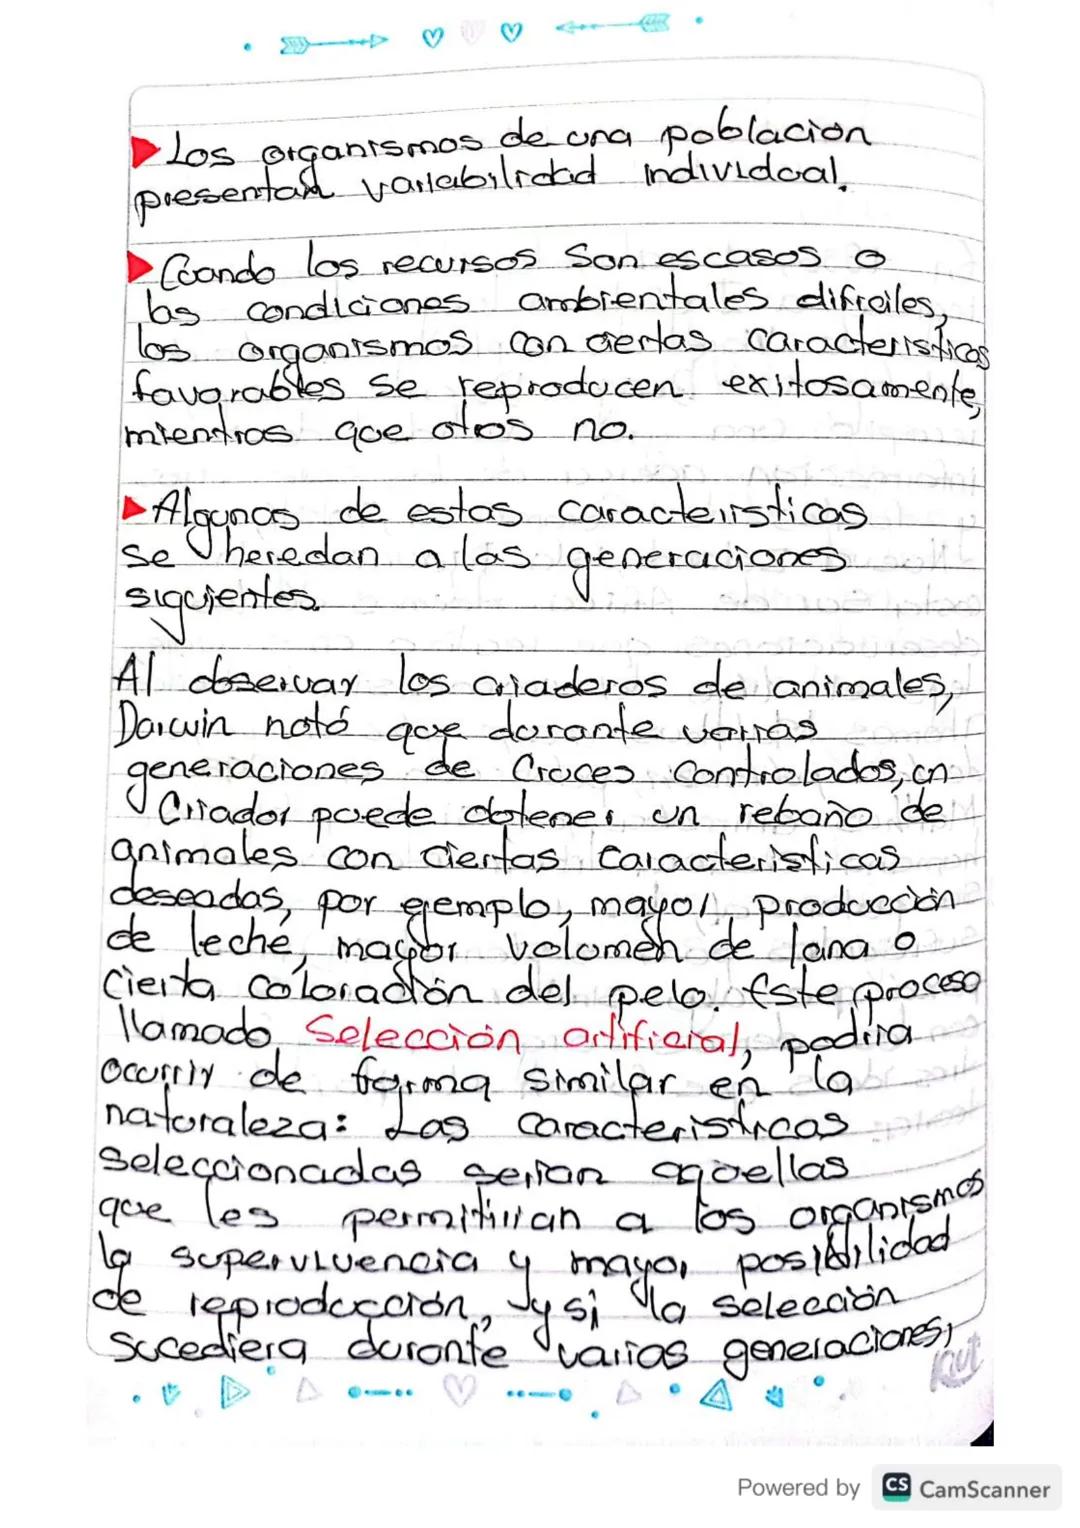 Los organismos de una poblacion
presentan variabilidad individual.
Cuando los recursos son escasos o
las condiciones ambientales dificiles,
los organismos con ciertas caracteristicas
favorables se reproducen exitosamente,
mientras que otros no.
Algunas de estas caracteristicas
se heredan a las generaciones
siguientes.
Al observar los criaderos de animales,
Darwin notó que durante varias
generaciones de Cruces Controlados, un
Criador puede obtener un rebaño de
animales con ciertas caracteristicas
deseadas, por ejemplo, mayor producción
de leche, mayor volumen de lana o
cierta coloración del pelo. Este proceso
llamado Selección artificial, podria
ocurrir de forma similar en la
naturaleza: Las caracteristicas
seleccionadas serian aquellas
que les permitirian a los organismos
la supervivencia y mayor posibilidad
de reproducción, y si la selección
Sucediera durante varias generaciones,
Kiut
Powered by CS CamScanner